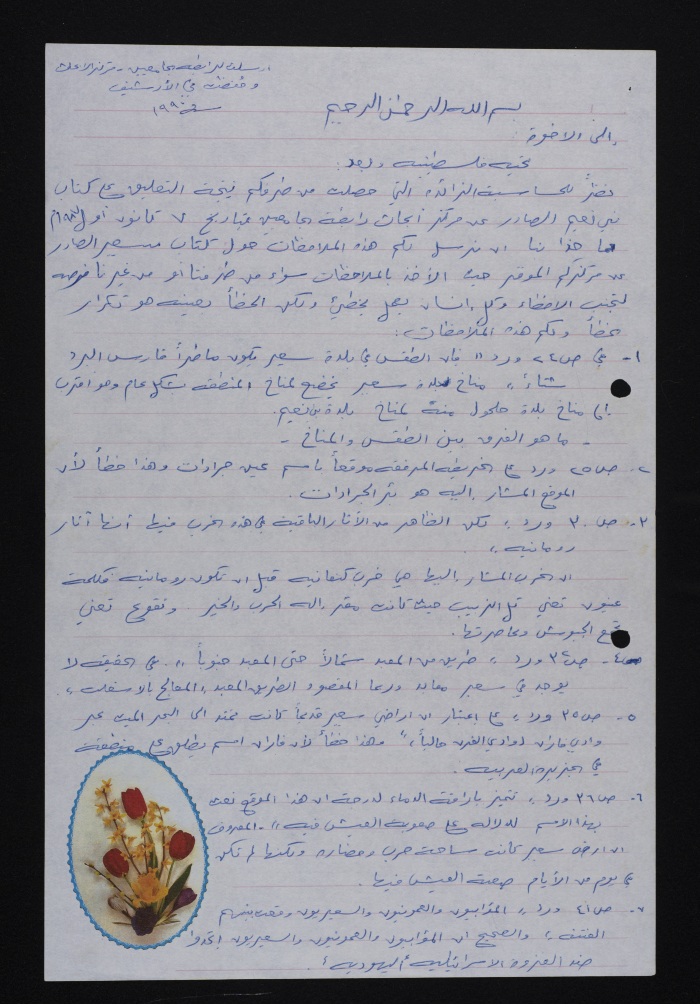 ارسلت لرابطة الجامعيين - مركز الابحاث
وحفظت في الأرشيف
سنة ١٩٩٠
بسم الله الرحمن الرحيم
إلى الاخوة :
تحية فلسطينية وبعد :
نظراً للحساسية الزائدة التي حصلت من طرفكم نتيجة التعليق على كتاب
بني نعيم الصادر عن مركز ابحاث رابطة الجامعيين بتاريخ ٧ كانون أول
مما حذا بنا ان نرسل لكم هذه الملاحظات حول كتاب سعير الصادر
عن مركزكم الموقر حيث الأخذ بالملاحظات سواء من طرفنا او من غيرنا
لتجنب الاخطاء وكل انسان يعمل يخطئ ولكن الخطأ بعينه هو تكرار
الخطأ ولكم هذه الملاحظات :
١- في ص ٢٤ ورد " فان الطقس في بلدة سعير يكون ماطراً قارس البرد
شتاءً " مناخ بلدة سعير يخضع لمناخ المنطقة بشكل عام وهو اقرب
إلى مناخ بلدة حلحول منه لمناخ بلدة بني نعيم.
- ما هو الفرق بين الطقس والمناخ -
٢- ص ٢٥ ورد على الخريطة المرفقة موقعاً باسم عين جرادات وهذا خطأ لأن
الموقع المشار إليه هو بئر الجرادات .
٣- ص ٣٠ ورد " لكن الظاهر من الآثار الباقية في هذه الخرب فيها أنها آثار
رومانية " .
ان الخرب المشار إليها هي خرب كنعانية قبل ان تكون رومانية فكلمة
عينون تعني تل الزبيب حيث كانت مقر إله الحرب والخير . وتقوع تعني
قمع الجيوش ومحاصرتها .
٤- ص ٣٢ ورد " طريق من المعبد شمالاً حتى المعبد جنوباً " . في الحقيقة لا
يوجد في سعير معابد وربما المقصود الطريق المعبد ، المعالج بالاسفلت .
٥- ص ٣٥ ورد " على اعتبار ان اراضي سعير قديماً كانت تمتد الى البحر الميت عبر
وادي فاران (وادي الغرن حالياً) " وهذا خطأ لأن فاران اسم يطلق على منطقة
في الجزيرة العربية .
٦- ص ٣٦ ورد " تتميز باراقة الدماء لدرجة ان هذا الموقع نعت
بهذا الاسم للدلالة على صعوبة العيش فيه " . المعروف
ان ارض سعير كانت ساحة حرب وحضارة ولكنها لم تكن
في يوم من الأيام صعبة العيش فيها .
٧- ص ٤١ ورد " المؤابيون والعمونيون والسعيريون وقعت بينهم
الفتنة " والصحيح ان المؤابيون والعمونيون والسعيريون اتحدوا
ضد الغزوة الاسرائيلية اليهودية .